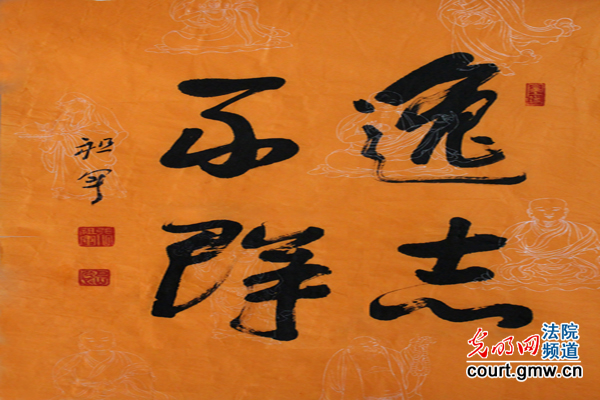 逸志
不群
祖军
光明网
法院
频道
court.gmw.cn